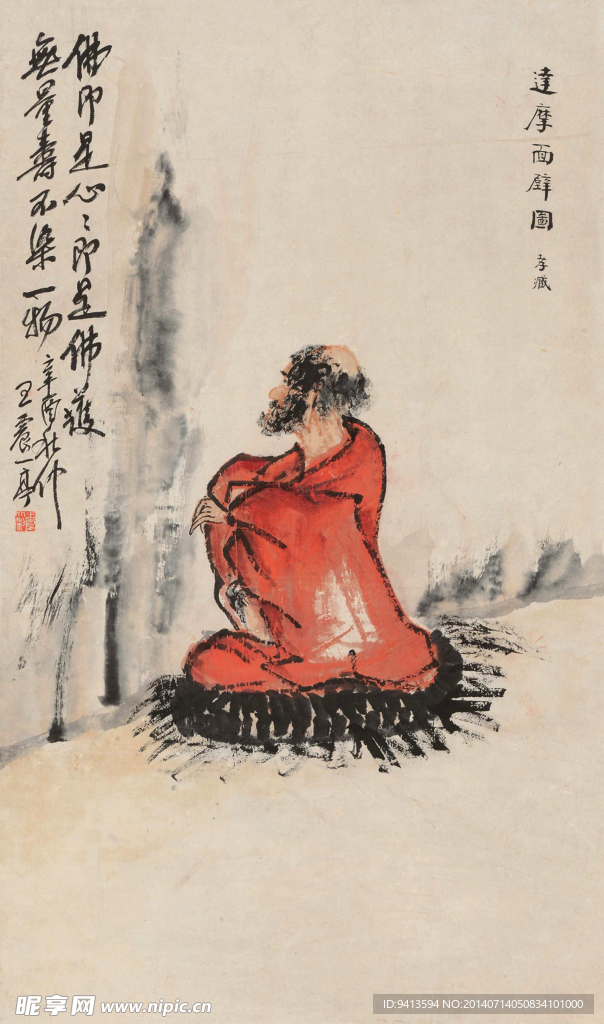 達摩面壁圖
孝臧
佛即是心〻即是佛護
無量壽不染一物
辛酉秋仲
王震一亭
昵享网 www.nipic.cn
ID:9413594 NO:20140714050834101000